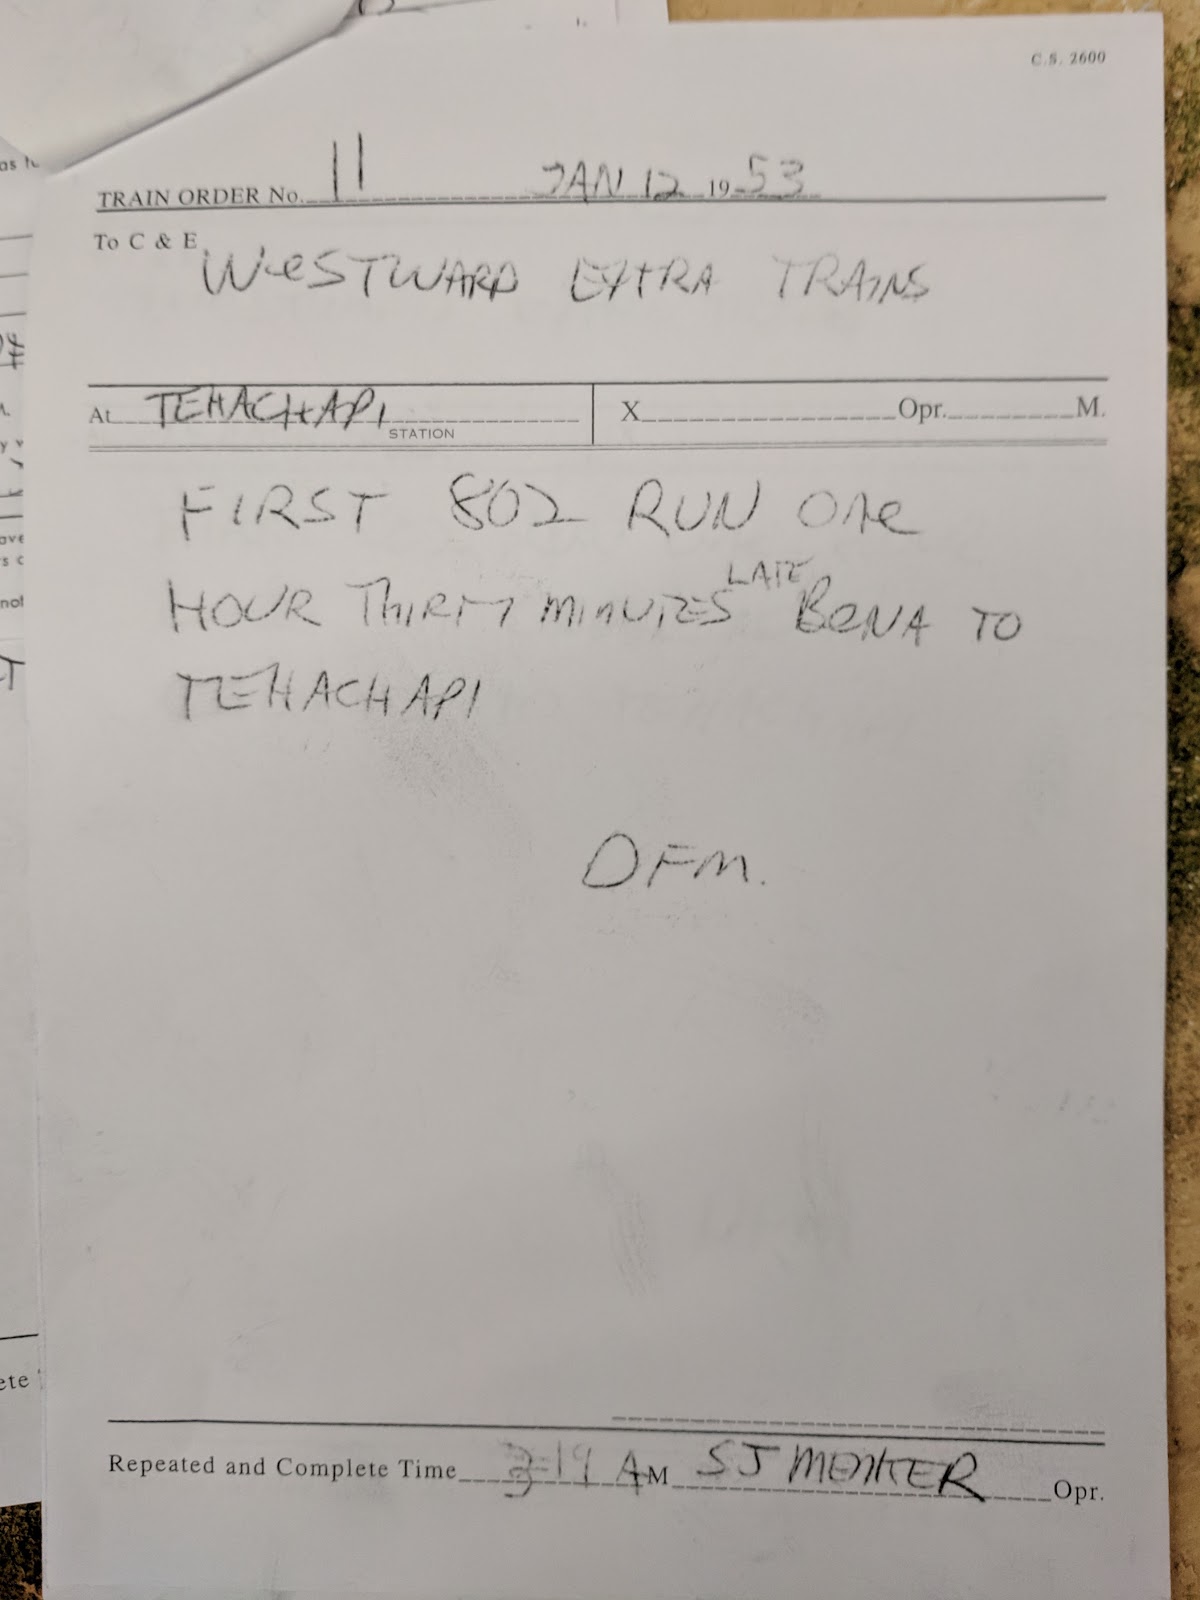 C.S. 2600
TRAIN ORDER No. 11 JAN 12 1953
To C & E
WeSTWARD EXTRA TRAINS
At TEHACHAPI STATION X Opr. M.
FIRST 802 RUN One
HOUR THIRTY MINUTES LATE BeNA TO
TEHACHAPI
DFM.
ete
Repeated and Complete Time AM SJ MENKER Opr.